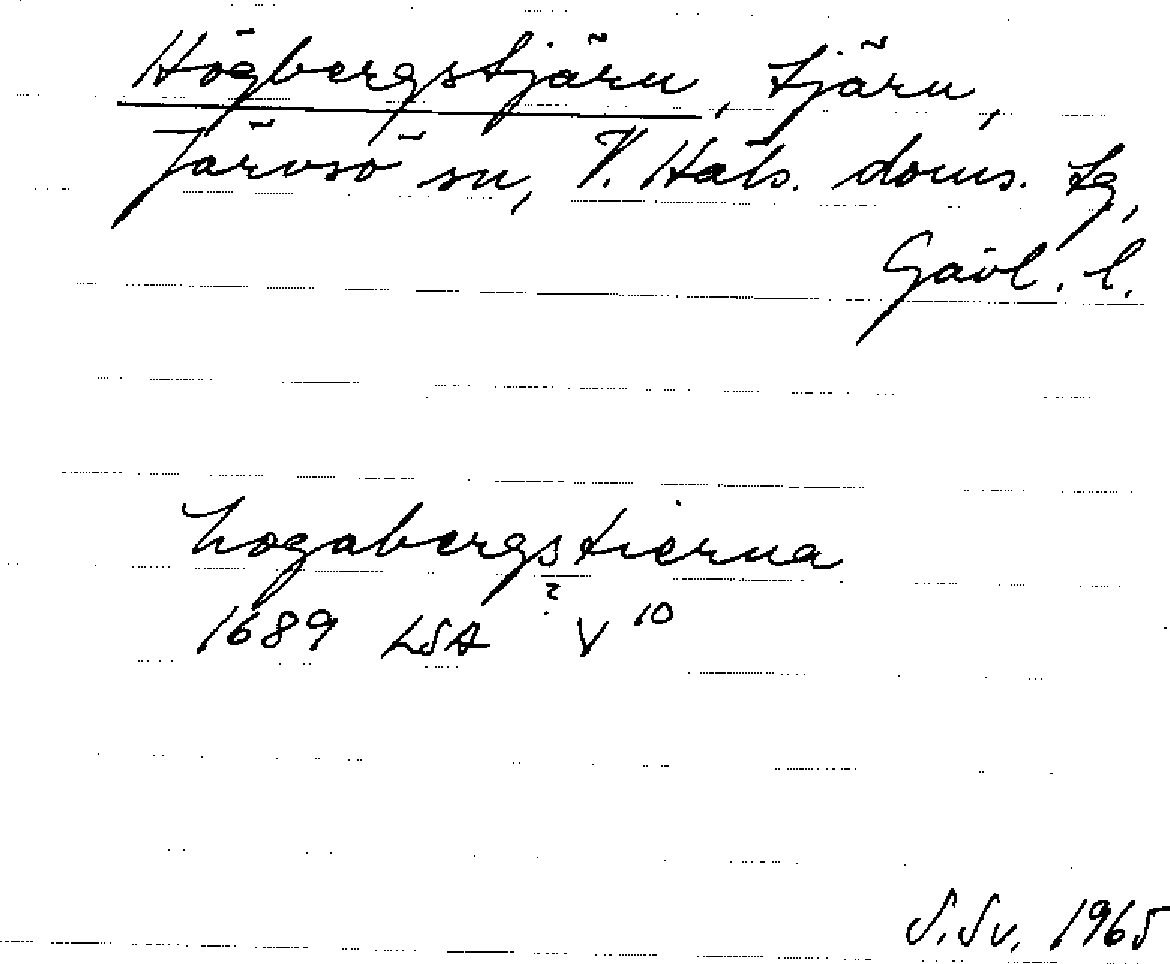 Högbergstjärn, tjärn,
Järvsö sn, V. Häls. doms. tg,
Gävl. l.
hogabergstierna
?
1689 LSA V 10
S.Sv. 1965